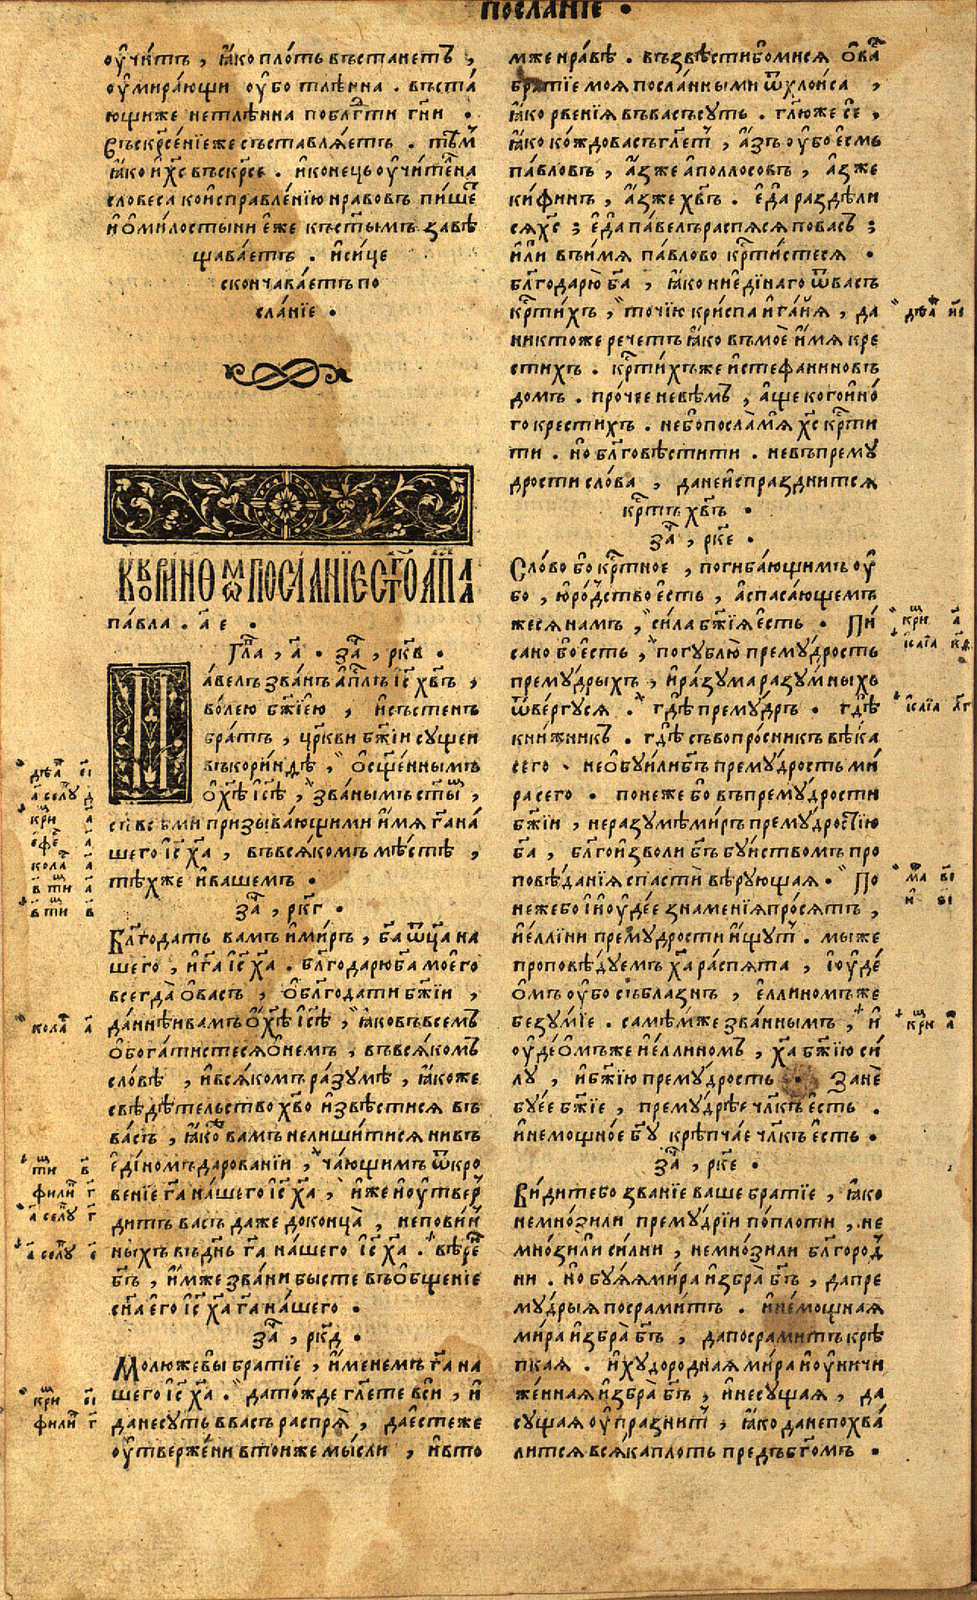 посланіе .
оучитъ , ꙗко плоть въстанетъ ,
оумирающи оубо тлѣнна . въста
ющиже нетлѣнна поблг҃ти гн҃и .
Въскрсеніеже съставляетъ . тѣм
ꙗко и хс҃ въскрсе . иконець оучителна
словеса коисправленію нравовъ пише
и омилостыни еже къстымъ завѣ
щаваетъ . исице
скончаваетъ по
сланіе .
Къкоринѳѡмъ посланіе ст҃го ап҃ла
павла . а҃ е .
Гла , а҃ . за , рк҃в .
Павелъ званъ апл҃ъ іс҃ хв҃ъ ,
волею бж҃іею , исъстенъ
братъ , црк҃ви бж҃іи сущеи
въкоринѳѣ , осщ҃еннымъ
охѣ҃ ісѣ҃ , званымъ сты҃ ,
съ всѣми призывающими имя га҃ на
шего іс҃ ха҃ , въвсякомъ мѣстѣ ,
тѣхже ивашемъ .
за , рк҃г .
Благодать вамъ имиръ , ба҃ ѿц҃а на
шего , и га҃ іс҃ ха҃ . благодарю ба҃ моего
всегда овасъ , облг҃одати бж҃іи ,
даннѣи вамъ охѣ҃ ісѣ҃ , ꙗковъвсемъ
обогатистеся онемъ , въвсякомъ
словѣ , ивсякомъ разумѣ , ꙗкоже
свѣдѣтельство хв҃о извѣстися въ
васъ , ꙗко вамъ нелишитися нивъ
единомъ даровании , чающимъ ѿкро
веніе га҃ нашего іс҃ ха҃ , иже иоутвер
дитъ васъ даже доконца , неповин
ныхъ въднь га҃ нашего іс҃ ха҃ . вѣрен
бг҃ъ , имже звани бысте въобщеніе
сн҃а его іс҃ ха҃ га҃ нашего .
за , рк҃д .
Молюжевы братіе , именемъ га҃ на
шего іс҃ ха҃ . датожде гл҃ете вси , и
данесуть ввасъ распря , даестеже
оутвержени втоиже мысли , ивто
мже нравѣ . възвѣстибомися ова
братіе моя посланными ѿхлоиса ,
ꙗко рвенія въвасъ суть . гл҃юже се ,
ꙗко кождо васъ гл҃ет , азъ оубо есмь
павловъ , азже аполлосовъ , азже
кифинъ , азже хв҃ъ . еда раздѣли
сяхс҃ ; еда павелъ распяся повасъ ;
или въимя павлово крт҃истеся .
благодарю ба҃ , ꙗко ниединаго ѿвасъ
крт҃ихъ , точію криспа игаия , да
никтоже речетъ ꙗко въмое имя кре
стихъ . крт҃ихъже истефаниновъ
домъ . прочее невѣмъ , аще когоино
го крестихъ . небопосла мя хс҃ крт҃и
ти . но благовѣстити . невъпрему
дрости слова , данеиспразднится
кртъ҃ хв҃ъ .
за , рк҃е .
Слово бо крт҃ное , погибающимъ оу
бо , юродство есть , аспасающем
жеся намъ , сила бж҃ія есть . Пи
сано бо есть , погублю премудрость
премудрыхъ , иразума разумныхъ
ѿвергуся . гдѣ премудръ . гдѣ
книжникъ . гдѣ съвопросникъ вѣка
сего . необуилибг҃ъ премудрость ми
ра сего . понеже бо въпремудрости
бж҃іи , неразумѣ миръ премудростію
ба҃ , благоизволи бг҃ъ буиствомъ про
повѣданія спасти вѣрующая . По
нежебо иоудее знаменія просятъ ,
иеллини премудрости ищут . мы же
проповѣдуемъ ха҃ распята , іоуде
омъ оубо съблазнъ , еллиномъже
безуміе . самѣмже званнымъ , и
оудеомъже иеллином , ха҃ бж҃ію си
лу , ибж҃ію премудрость . Зане
буее бж҃іе , премудрѣе чл҃къ есть .
инемощное бг҃у крѣпчае чл҃къ есть .
за , рк҃е .
Видитебо званіе ваше братіе , ꙗко
немнозили премудріи поплоти , не
мнозили силни , немнозили благород
ни . но буяя мира избра бг҃ъ , дапре
мудрыя посрамитъ . инемощная
мира избра бг҃ъ , дапосрамитъ крѣ
пкая . ихудородная мира иоуничи
женная избра бг҃ъ , инесущая , да
сущая оупразнит , ꙗко данепохва
лится всяка плоть предъ бг҃омъ .